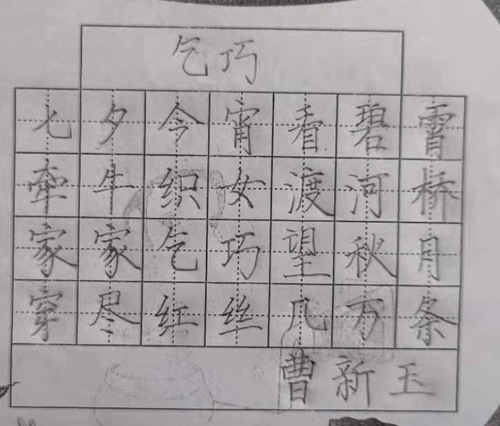 乞巧
七夕今宵看碧霄
牵牛织女渡河桥
家家乞巧望秋月
穿尽红丝几万条
曹新玉